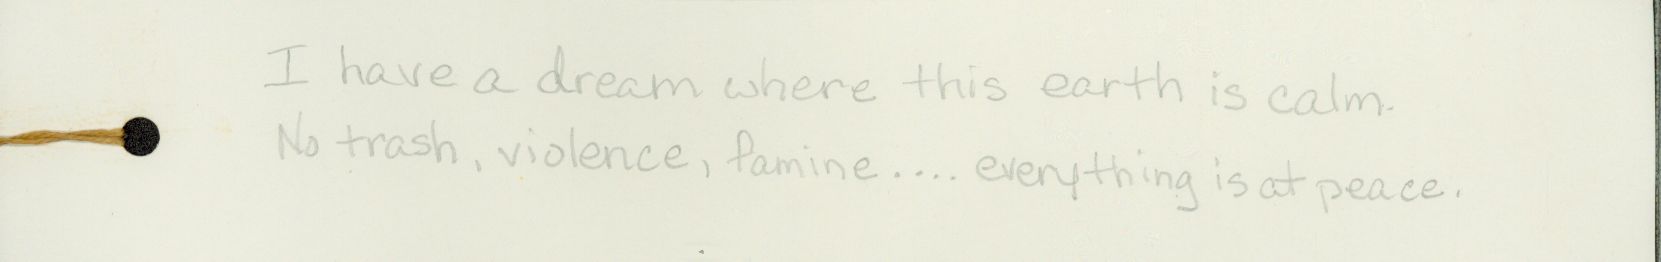 I have a dream where this earth is calm.
No trash, violence, famine.... everything is at peace.